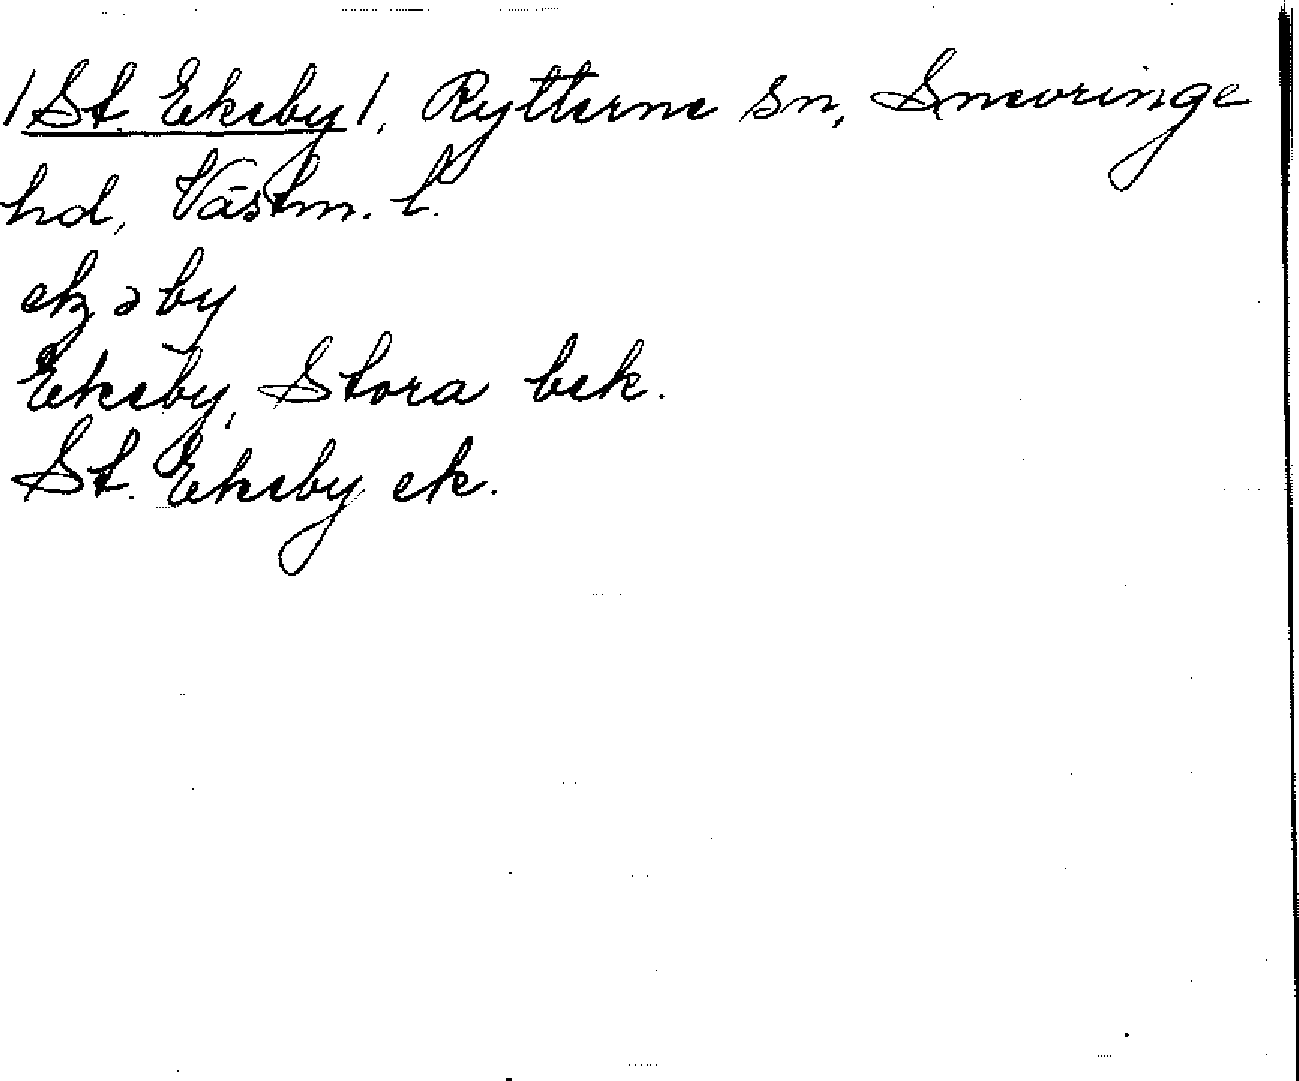 /St. Ekeby/, Rytterne sn, Snevringe
hd, Västm. l.
ekəby
Ekeby, Stora bek.
St. Ekeby ek.